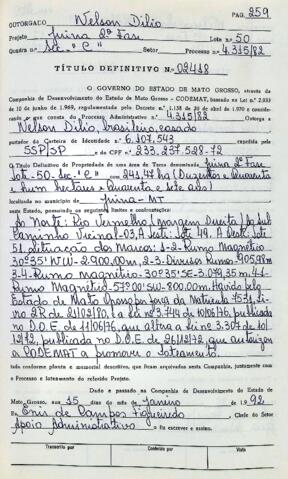 PAG. 259
OUTORGADO Nelson Dilio
Projeto Juina 2ª Fase Lote n.º 50
Quadra n.º Sec. "C" Setor Processo n.º 4.315/82
TÍTULO DEFINITIVO N.º 02418
O GOVERNO DO ESTADO DE MATO GROSSO, através da
Companhia de Desenvolvimento do Estado de Mato Grosso - CODEMAT, baseado na Lei n.º 2.933
de 10 de junho de 1969, regulamentado pelo Decreto n.º 1.138 de 20 de abril de 1970 e considerando
o que consta do Processo Administrativo n.º 4.315/82 Outorga a
Nelson Dilio, brasileiro, casado
portador da Carteira de Identidade n.º 6.107.543 expedida pela
SSP/SP e CPF n.º 233.237.528-72
O Título Definitivo de Propriedade de uma área de Terras denominada Juina 2ª Fase
Lote-50-Sec-"C" com 241,47 ha (Duzentos e Quarenta
e hum hectares e Quarenta e sete ares)
localizada no município de Juina-MT
neste Estado, possuindo os seguintes limites e confrontações:
Ao Norte: Rio Vermelho (margem Direita) Ao Sul
Caminho Vicinal-03, A Leste: Lote 49, A Oeste: Lote
51, situação dos Marcos: 1-2-Rumo Magnético
30º35' NW-2.900,00m, 2-3 Divisor Rumo-905,98m
3-4-Rumo magnético-30º35' SE-3.079,35m, 4-1-
Rumo Magnético-57º00' SW-800,00m. Havido pelo
Estado de Mato Grosso por força da Matricula 7574, Livro
2R de 21/02/80, a Lei nº 3.744 de 10/06/76, publicada
no D.O.E. de 11/06/76, que altera a Lei nº 3.307 de 10/
12/72, publicada no D.O.E. de 26/12/72 que autorizou
a CODEMAT a promover o Loteamento.
tudo conforme planta e memorial descritivo, que ficam arquivados nesta Companhia, juntamente com
o Processo e loteamento do referido Projeto.
Dado e passado na Companhia de Desenvolvimento do Estado de
Mato Grosso, aos 15 dias do mês de Janeiro de 1.992
Eu Enis de Campos Figueiredo Chefe do Setor
Apoio Administrativo Fiz escrever e assino.
Transcrito por Conferido por Visto